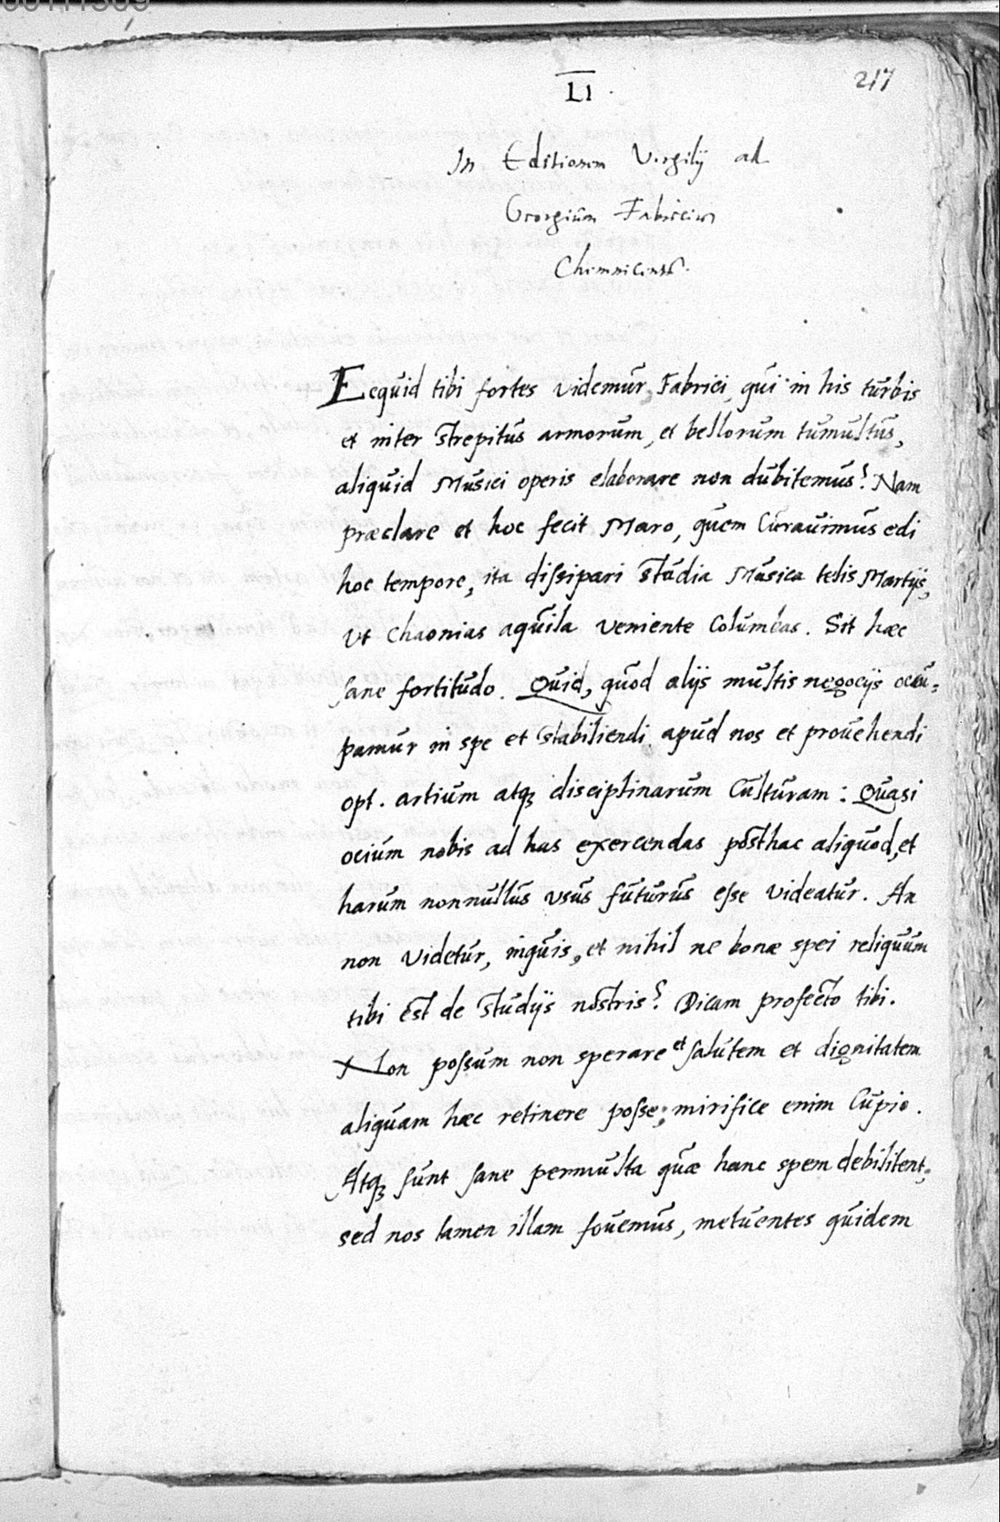 217
LI.
In Editionem Virgilij ad
Georgiũm Fabricium
Chemnicens.
Ecquid tibi fortes videmur, Fabrici, qui in his turbis
et inter strepitus armorum, et bellorum tumultus,
aliquid Musici operis elaborare non dubitemus? Nam
præclare et hoc fecit Maro, quem Curavimus edi
hoc tempore, ita dissipari studia Musica telis Martijs,
Vt Chaonias aquila veniente Columbas. Sit hæc
sane fortitudo. Quid, quod alijs multis negocijs occu=
pamur in spe et stabiliendi apud nos et provehendi
opt. artium atq; disciplinarum Culturam: Quasi
ocium nobis ad has exercendas posthac aliquod, et
harum nonnullus usus futurus esse videatur. An
non videtur, inquis, et nihil ne bonæ spei reliquum
tibi est de studijs nostris? Dicam profecto tibi.
Non possum non sperare et salutem et dignitatem
aliquam hæc retinere posse; mirifice enim Cupio.
Atq; sunt sane permulta quæ hanc spem debilitent,
sed nos tamen illam fovemus, metuentes quidem